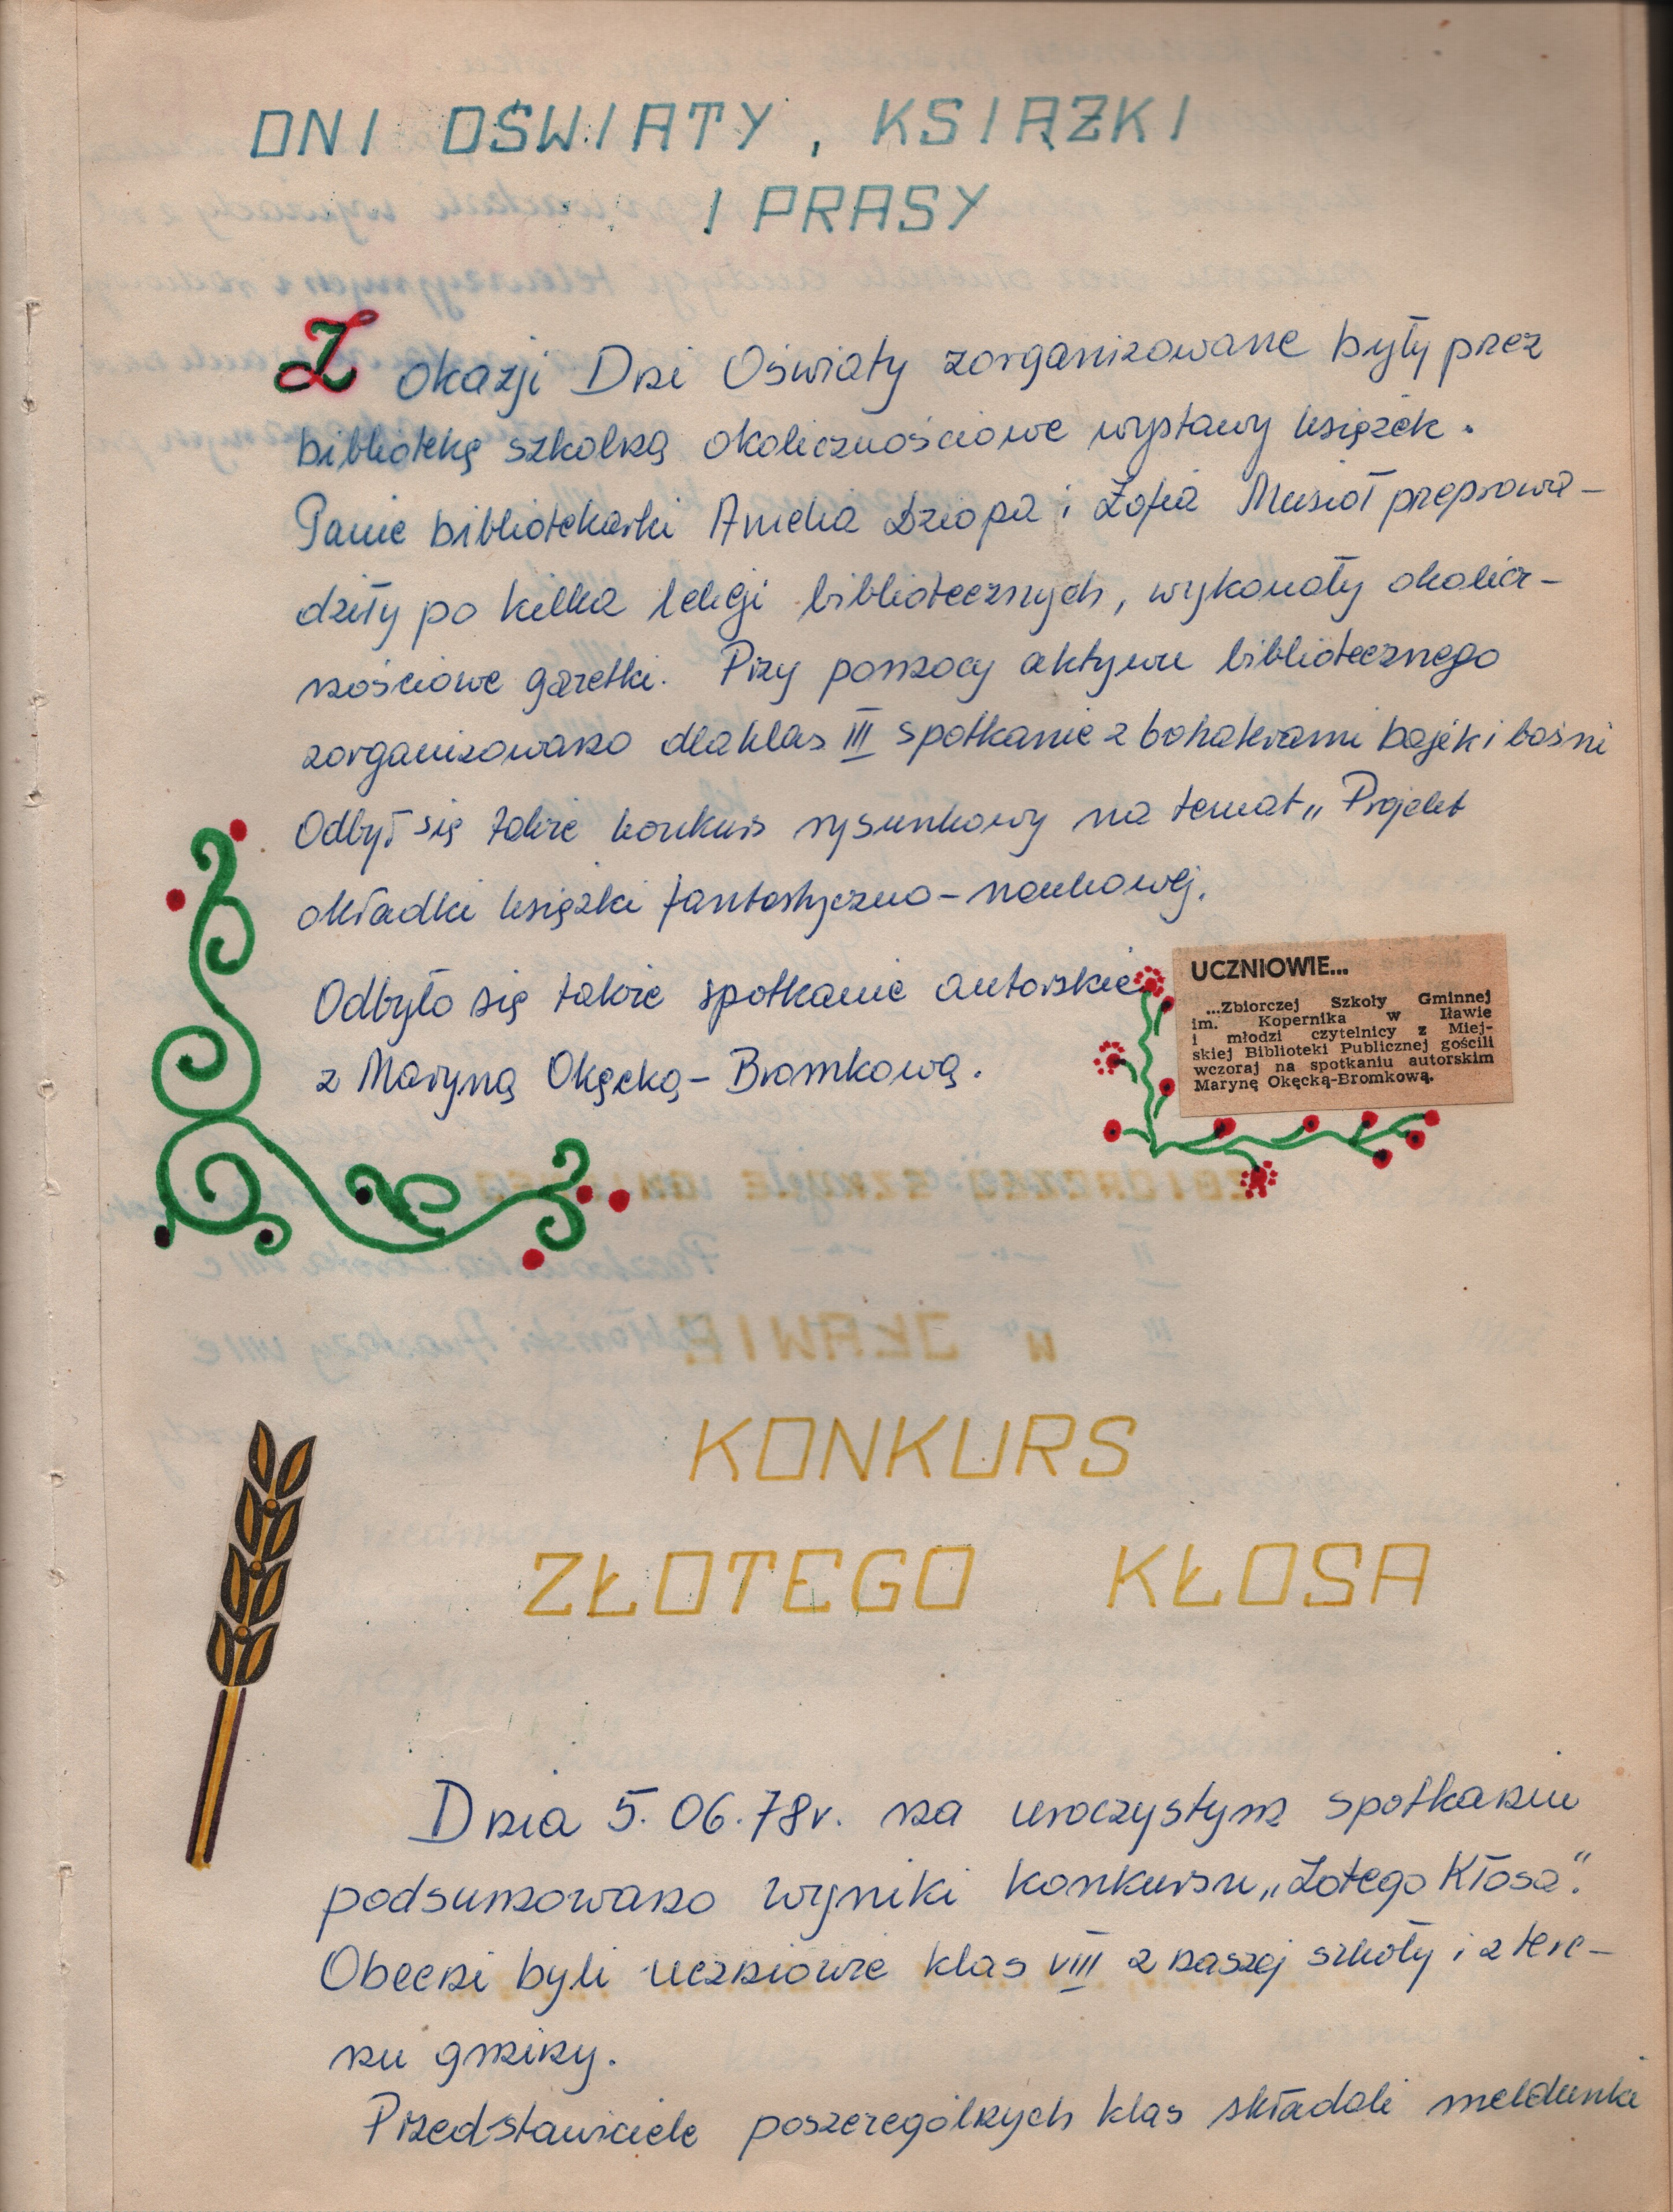 DNI OŚWIATY, KSIĄŻKI
I PRASY
Z okazji Dni Oświaty zorganizowane były przez
bibliotekę szkolną okolicznościowe wystawy książek.
Panie bibliotekarki Anielia Dziopa i Zofia Musioł przeprowa-
dziły po kilka lekcji bibliotecznych, wykonały okolicz-
nościowe gazetki. Przy pomocy aktywu bibliotecznego
zorganizowano dla klas III spotkanie z bohaterami bajek i baśni
Odbył się także konkurs rysunkowy na temat „Projekt
okładki książki fantastyczno-naukowej.
Odbyło się także spotkanie autorskie
z Maryną Okęcką-Bromkową.
UCZNIOWIE...
...Zbiorczej Szkoły Gminnej
im. Kopernika w Iławie
i młodzi czytelnicy z Miej-
skiej Biblioteki Publicznej gościli
wczoraj na spotkaniu autorskim
Marynę Okęcką-Bromkową.
KONKURS
ZŁOTEGO KŁOSA
Dnia 5.06.78r. na uroczystym spotkaniu
podsumowano wyniki konkursu „Zotego Kłosa".
Obecni byli uczniowie klas VIII z naszej szkoły i z tere-
nu gminy.
Przedstawiciele poszczególnych klas składali meldunki